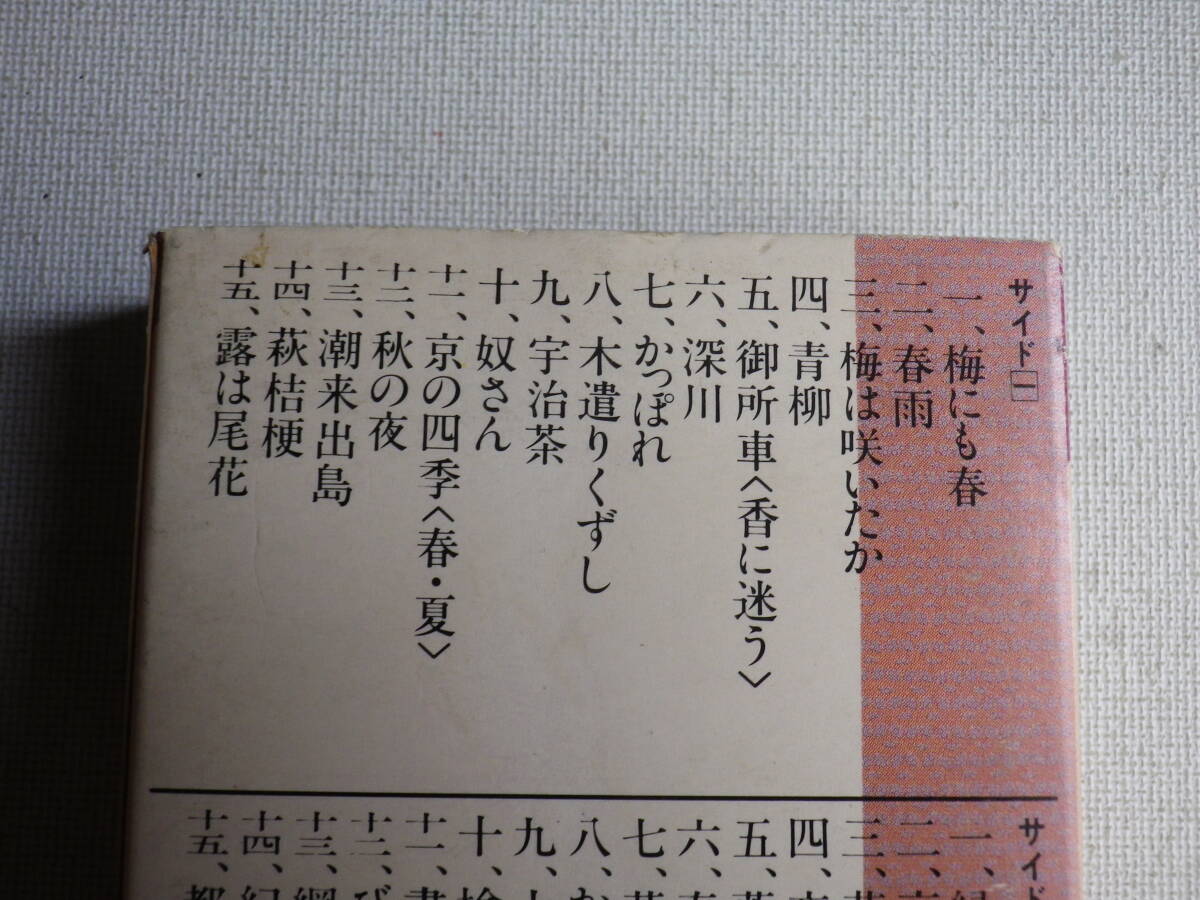 サイド一
一、梅にも春
二、春雨
三、梅は咲いたか
四、青柳
五、御所車〈香に迷う〉
六、深川
七、かっぽれ
八、木遣りくずし
九、宇治茶
十、奴さん
十一、京の四季〈春・夏〉
十二、秋の夜
十三、潮来出島
十四、萩桔梗
十五、露は尾花
サイド
一、
二、
三、
四、
五、
六、
七、
八、
九、
十、
十一、
十二、
十三、
十四、
十五、